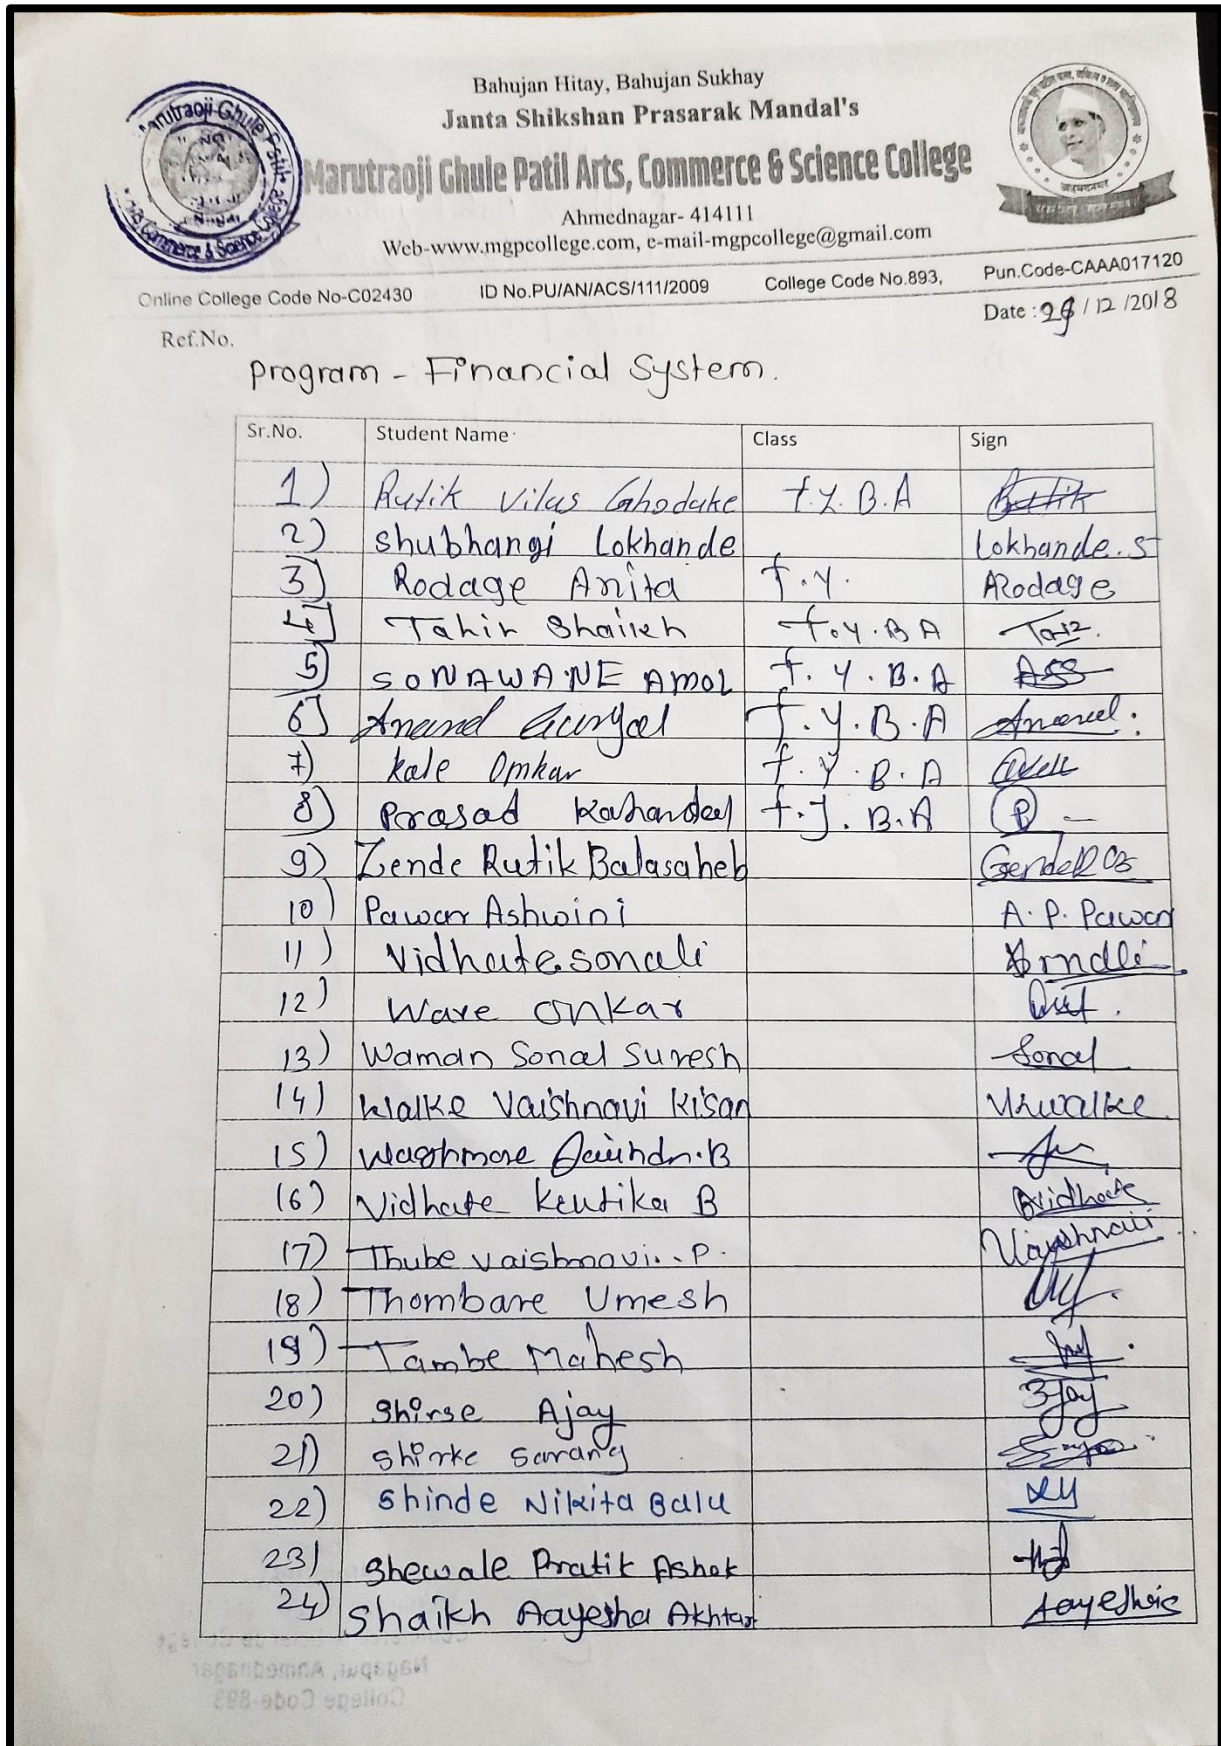 Bahujan Hitay, Bahujan Sukhay
Janta Shikshan Prasarak Mandal's
Marutraoji Ghule Patil Arts, Commerce & Science College
Ahmednagar- 414111
Web-www.mgpcollege.com, e-mail-mgpcollege@gmail.com
Online College Code No-C02430 ID No.PU/AN/ACS/111/2009 College Code No.893, Pun.Code-CAAA017120
Date : /12/2018
Ref.No.
Program - Financial System.
Sr.No. Student Name Class Sign
1) Rutik Vilas Ghoduke f.y.B.A Rutik
2) Shubhangi Lokhande Lokhande.s
3) Rodage Anita f.y. ARodage
4) Tahir Shaikh f.y.BA
5) SONAWANE AMOL f.y.B.A
6) Anand f.y.B.A Anand.
7) kale Omkar f.y.B.A
8) Prasad f.y.B.A P
9) Zende Rutik Balasaheb
10) Pawar Ashwini A.P.Pawar
11) Vidhate sonali
12) Ware Onkar
13) Waman Sonal Suresh Sonal
14) Walke Vaishnavi Kisan VKWalke
15) Waghmare B
16) Vidhate B
17) Thube Vaishnavi. P. Vaishnavi
18) Thombare Umesh
19) Tambe Mahesh
20) Shirse Ajay
21) Shirke Sarang
22) Shinde Nikita Balu
23) Shewale Pratik Ashok
24) Shaikh Aayesha Akhtar